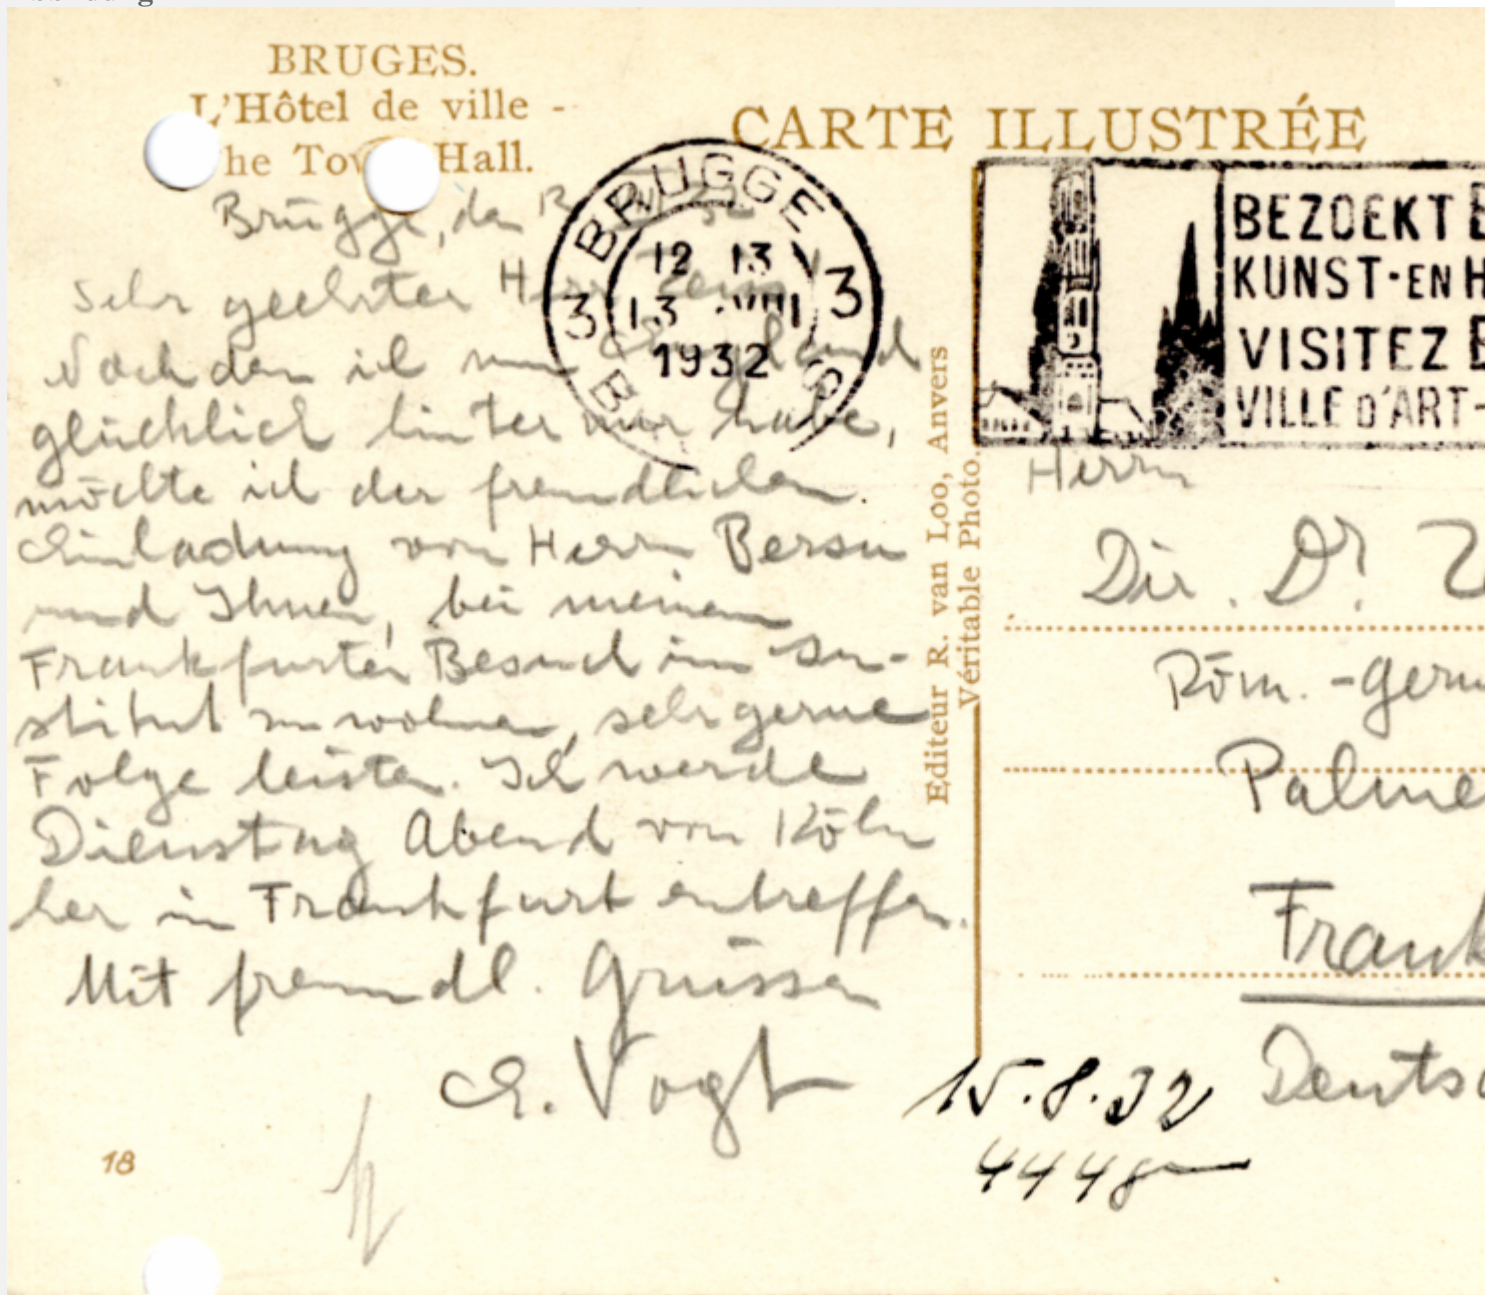 BRUGES.
L'Hôtel de ville -
he Tow Hall.
CARTE ILLUSTRÉE
BRUGGE
3 3
12 13
13 VIII
1932
B
BEZOEKT
KUNST-EN H
VISITEZ
VILLE D'ART-
Brügge, den 13
Sehr geehrter Herr Zeiss
Nachdem ich nun England
glücklich hinter mir habe,
möchte ich der freundlichen
Einladung von Herrn Bersu
und Ihnen, bei meinem
Frankfurter Besuch im In-
stitut zu wohnen, sehr gerne
Folge leisten. Ich werde
Dienstag Abend von Köln
her in Frankfurt entreffen.
Mit freundl. Grüssen
E. Vogt
18
Editeur R. van Loo, Anvers
Véritable Photo.
Herrn
Dir. Dr. Z
Röm.-germ
Palme
Frank
Deutsc
15.8.32
4448